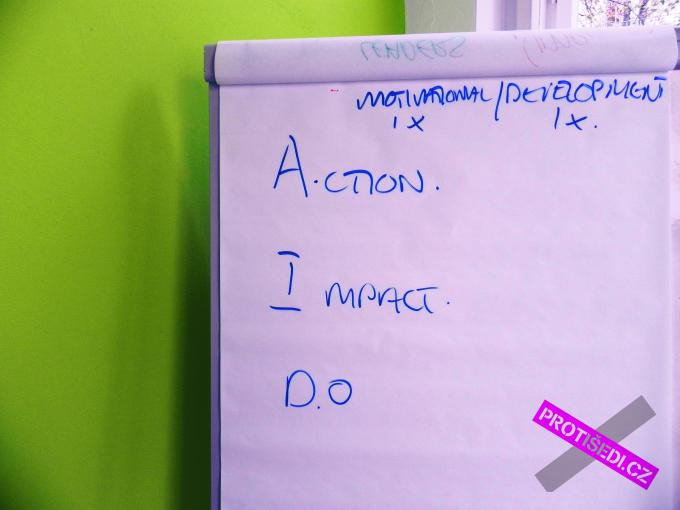 LEADERS
MOTIVATIONAL/DEVELOPMENT
1X 1X.
A.CTION.
IMPACT.
D.O
PROTIŠEDI.CZ